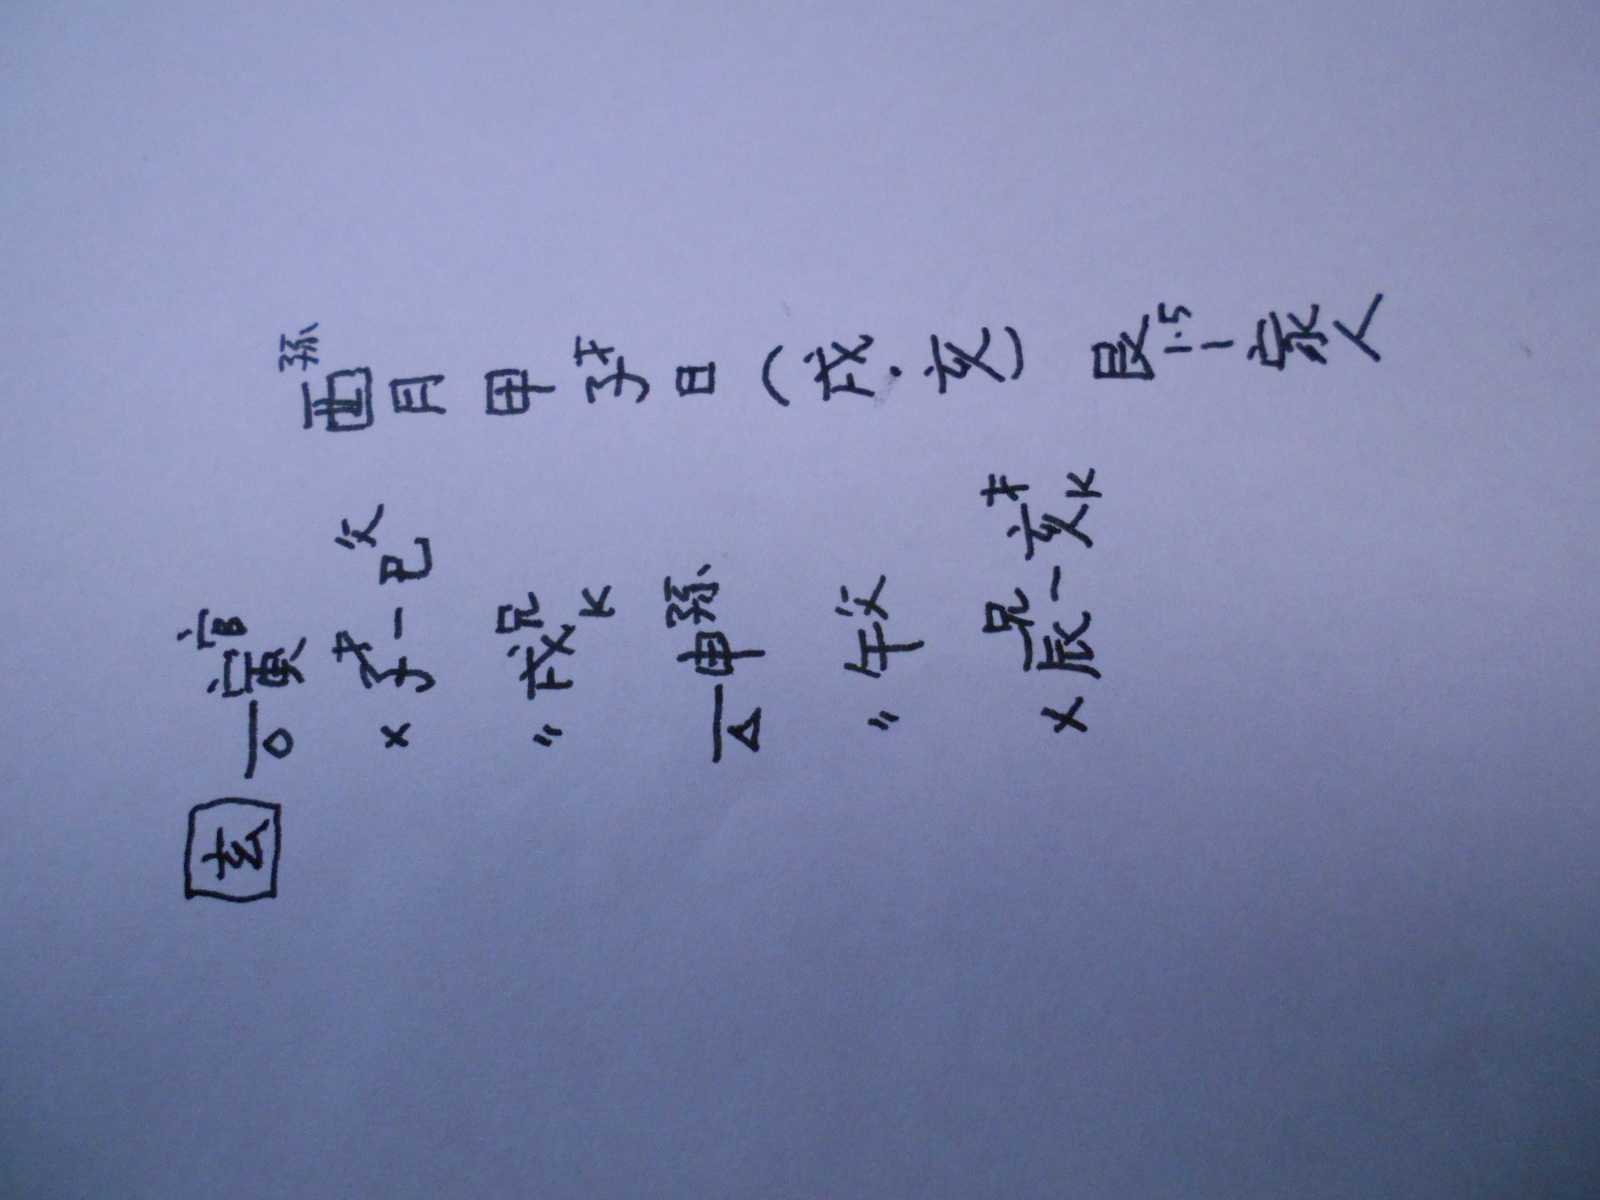 酉孫月甲子才日(戌.亥) 艮1.5—家人
玄 寅官
〃 戌兄 K
申孫
〃 午父
x 子才—巳父
x 辰兄—亥才 K